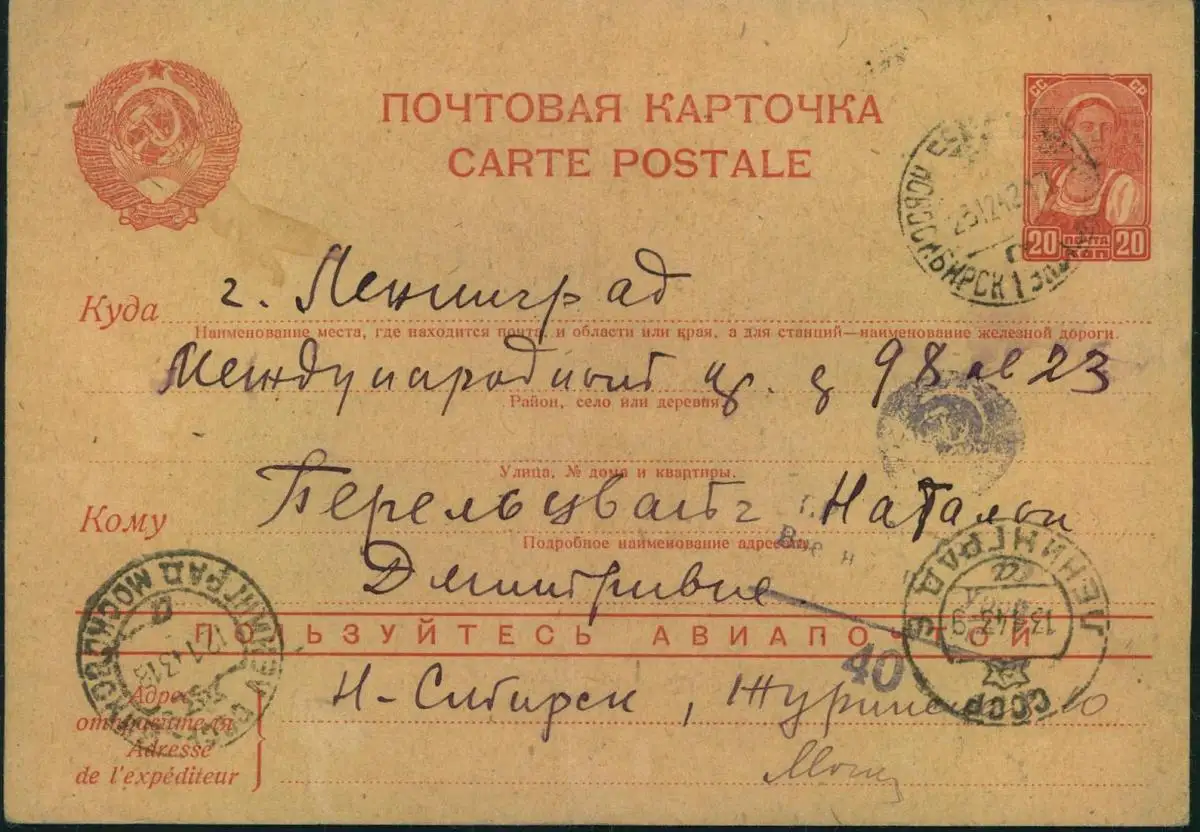 ПОЧТОВАЯ КАРТОЧКА
CARTE POSTALE
СС СР
20 ПОЧТА 20
КОП
НОВОСИБИРСК 1
Куда г. Ленинград
Наименование места, где находится почта, и области или края, а для станций—наименование железной дороги.
Международный пр. д 98 кв 23
Район, село или деревня.
Улица, № дома и квартиры.
Кому Перельцвайг Наталья
Подробное наименование адресата
Дмитривне
ПОЛЬЗУЙТЕСЬ АВИАПОЧТОЙ
40
ЛЕНИНГРАД
СССР
ЛЕНИНГРАД МОСКОВСК
Адрес отправителя
Adresse de l'expéditeur
Н-Сибирск,